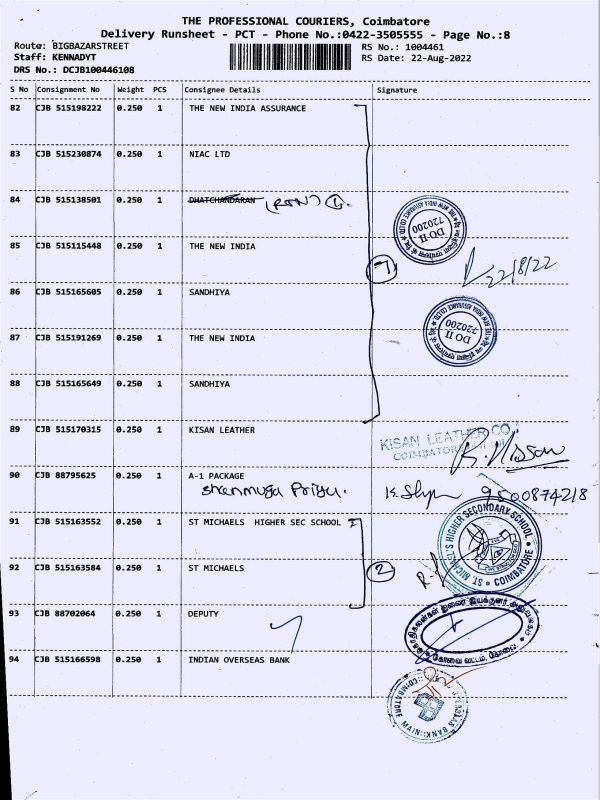 THE PROFESSIONAL COURIERS, Coimbatore
Delivery Runsheet - PCT - Phone No.:0422-3505555 - Page No.:8
Route: BIGBAZARSTREET RS No.: 1004461
Staff: KENNADYT RS Date: 22-Aug-2022
DRS No.: DCJB100446108
S No Consignment No Weight PCS Consignee Details Signature
82 CJB 515198222 0.250 1 THE NEW INDIA ASSURANCE
83 CJB 515230874 0.250 1 NIAC LTD
84 CJB 515138501 0.250 1 DHATCHANDARAN (RTN) 1.
DO II
720200
85 CJB 515115448 0.250 1 THE NEW INDIA
7 22/8/22
86 CJB 515165605 0.250 1 SANDHIYA
DO II
720200
87 CJB 515191269 0.250 1 THE NEW INDIA
88 CJB 515165649 0.250 1 SANDHIYA
89 CJB 515170315 0.250 1 KISAN LEATHER
KISAN LEATHER CO
90 CJB 88795625 0.250 1 A-1 PACKAGE
Shenmuga Priya. 9500874218
91 CJB 515163552 0.250 1 ST MICHAELS HIGHER SEC SCHOOL
ST. MICHAEL'S HIGHER SECONDARY SCHOOL COIMBATORE
92 CJB 515163584 0.250 1 ST MICHAELS 2
93 CJB 88702064 0.250 1 DEPUTY
கோவை வட்டம், கோவை.
94 CJB 515166598 0.250 1 INDIAN OVERSEAS BANK